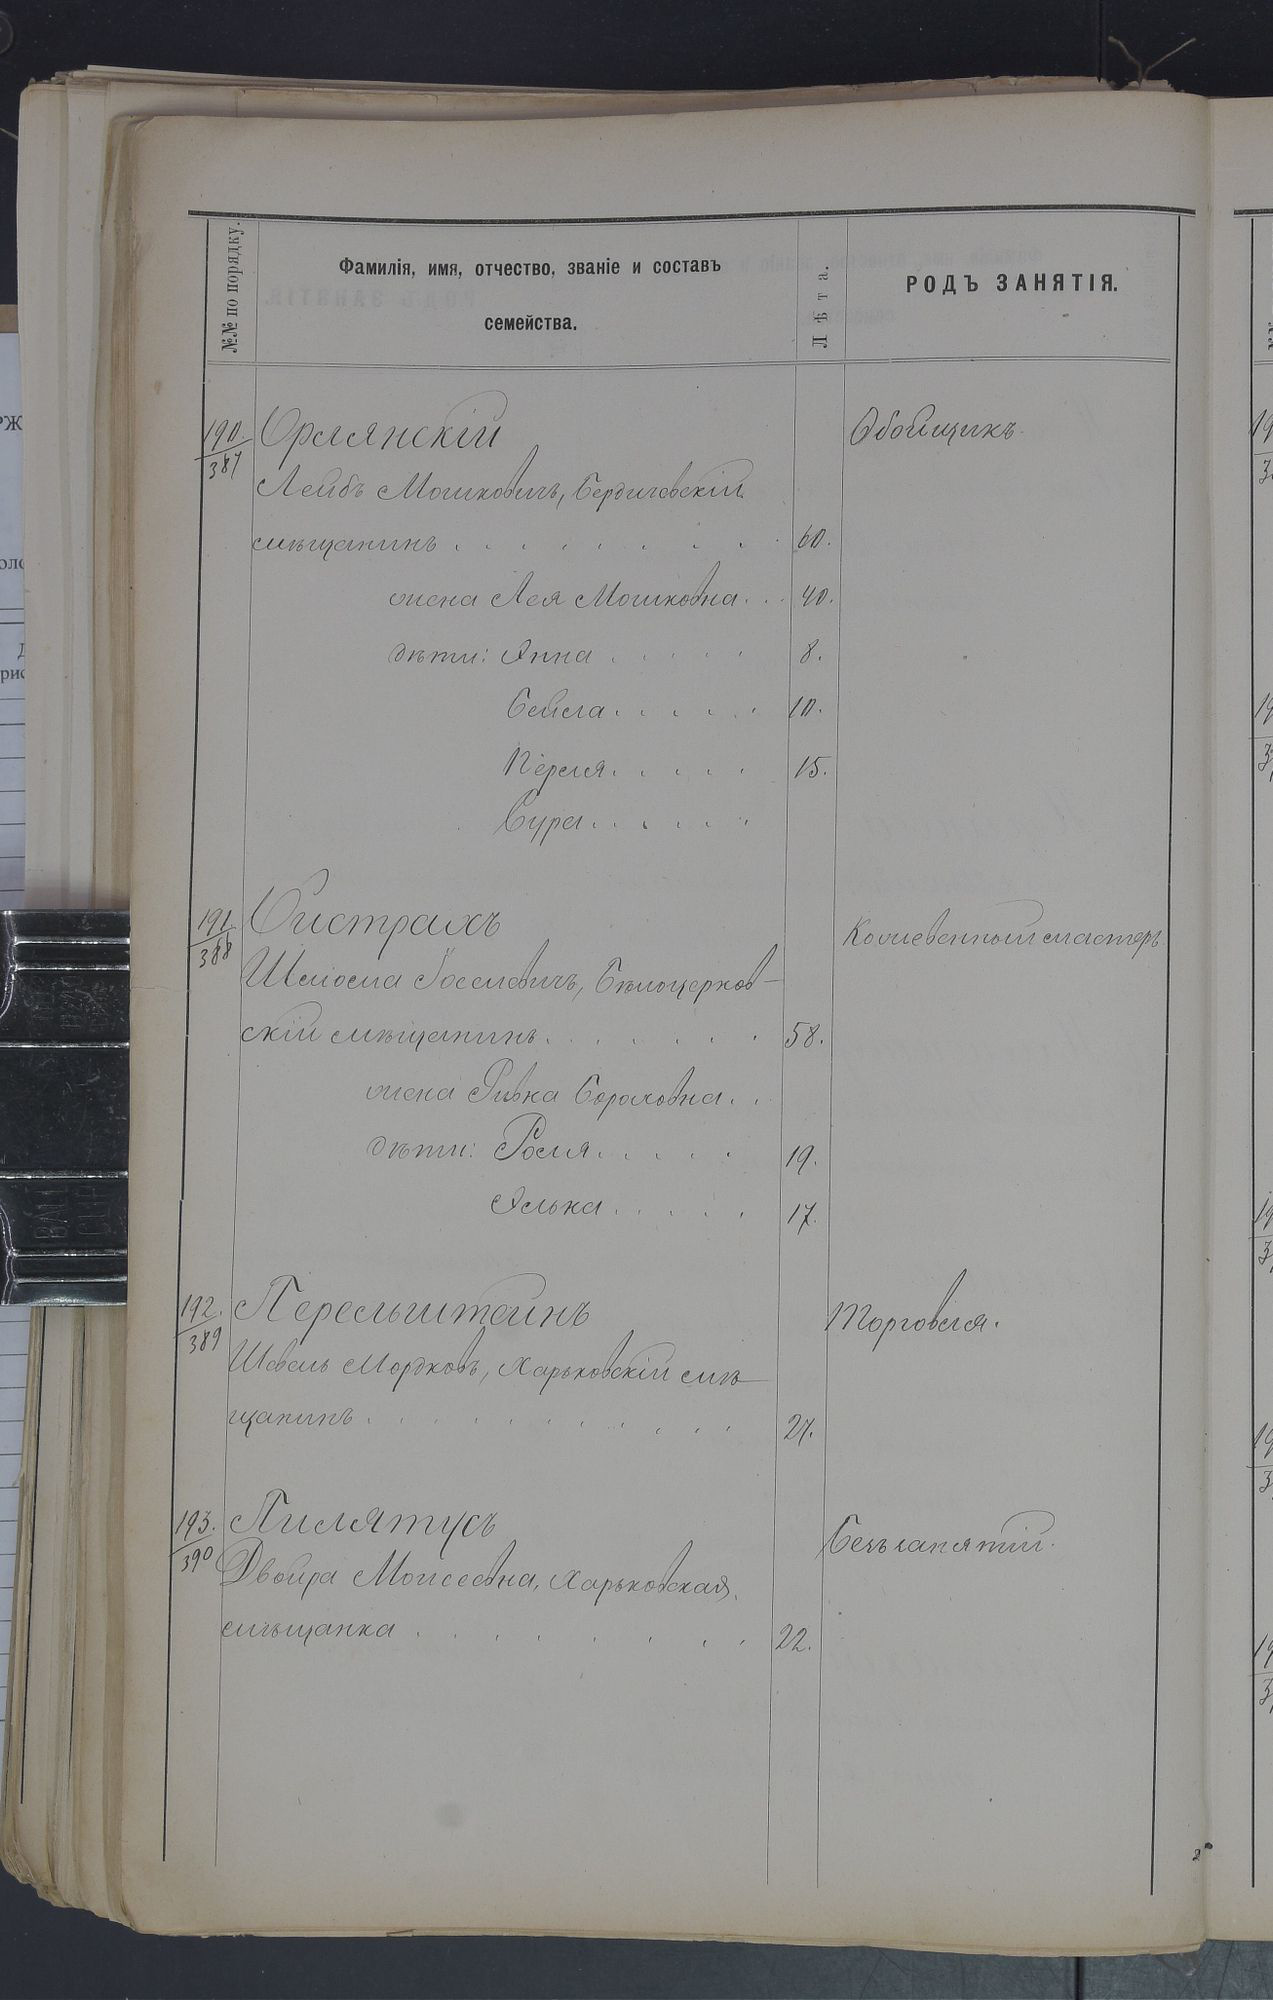 №№ по порядку.
Фамилія, имя, отчество, званіе и составъ
семейства.
Лѣта.
РОДЪ ЗАНЯТІЯ.
190. Орлянскій Обойщикъ.
387
Лейбъ Мошковичъ, Бердичевскій
мѣщанинъ . . . . . . . . 60.
жена Лея Мошковна . . . 40.
дѣти: Анна . . . . . 8.
Бейла . . . . . 10.
Перля . . . . . 15.
Сура . . . . . .
191. Систрахъ Кожевенный мастеръ
388
Шліома Іоселевичъ, Бѣлоцерков-
скій мѣщанинъ . . . . . . . 58.
жена Ривка Бороховна . .
дѣти: Рося . . . . . 19.
Элька . . . . . 17.
192. Перельштейнъ Торговля.
389
Шевель Мордковъ, Харьковскій мѣ-
щанинъ . . . . . . . . . 27.
193. Пилятусъ Безъ занятій.
390
Двойра Моисеевна, Харьковская
мѣщанка . . . . . . . 22.